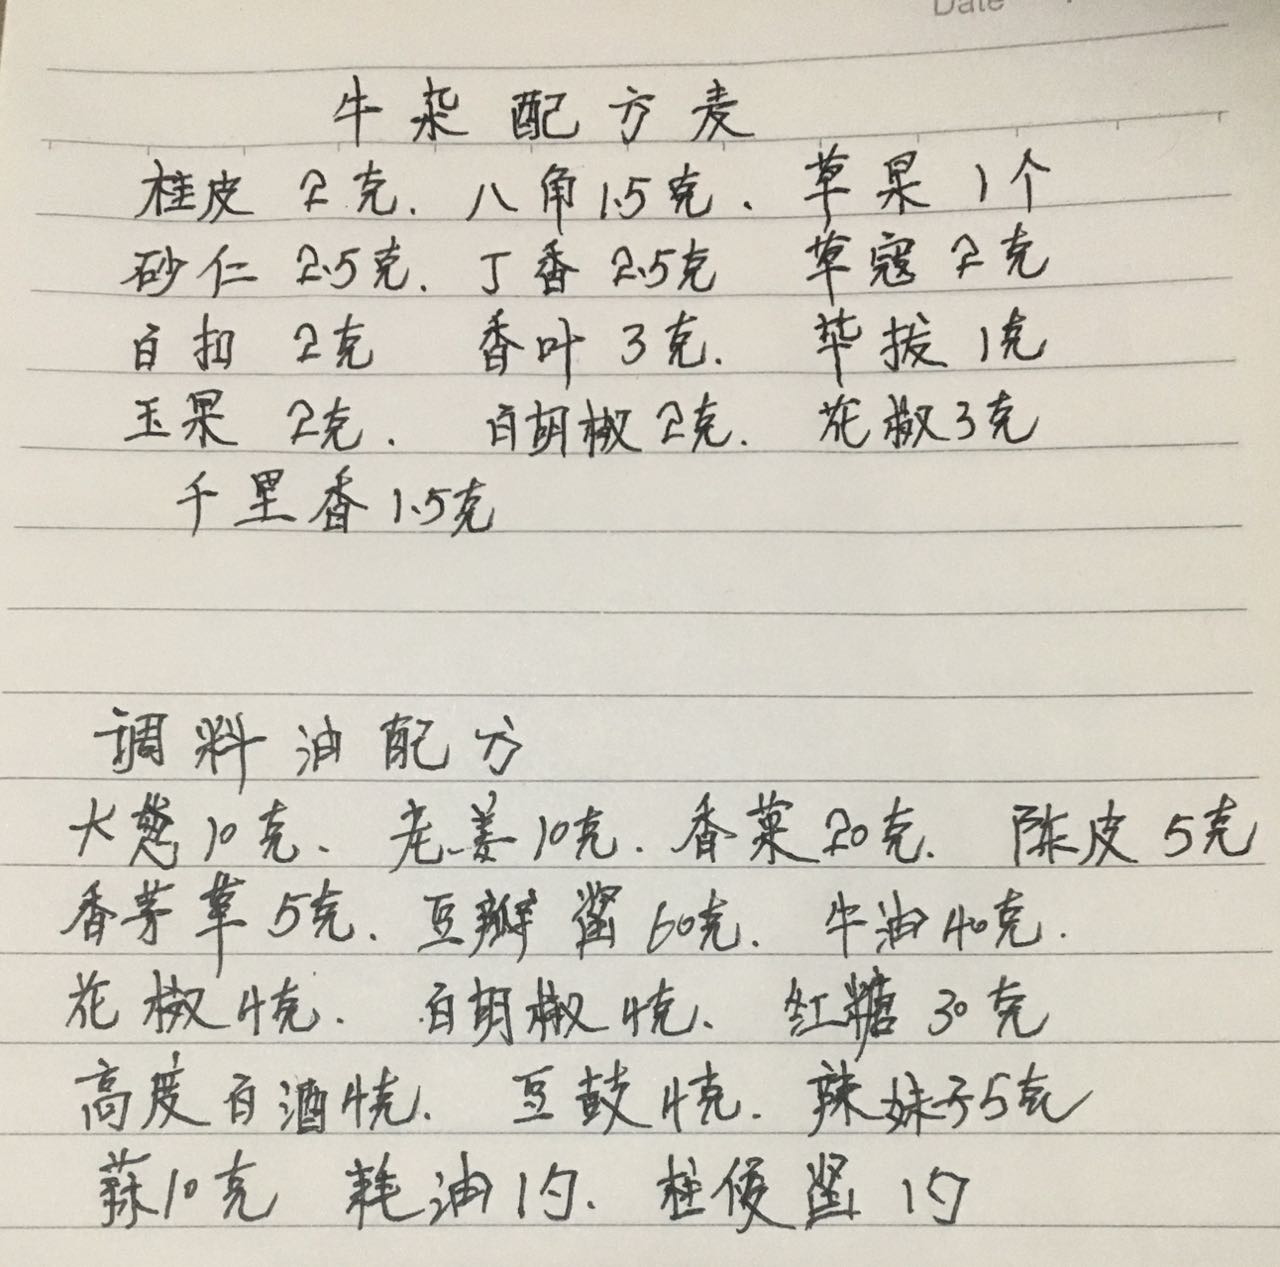 Date
牛杂配方麦
桂皮 2克. 八角1.5克. 草果 1个
砂仁 2.5克. 丁香 2.5克 草寇 2克
白扣 2克 香叶 3克. 荜拔 1克
玉果 2克. 白胡椒2克. 花椒3克
千里香1.5克
调料油配方
大葱10克、老姜10克. 香菜20克. 陈皮 5克
香茅草 5克. 豆瓣酱60克. 牛油40克.
花椒4克. 白胡椒4克、红糖 30克
高度白酒4克. 豆鼓4克. 辣妹子5克
蒜10克 耗油1勺. 柱侯酱 1勺